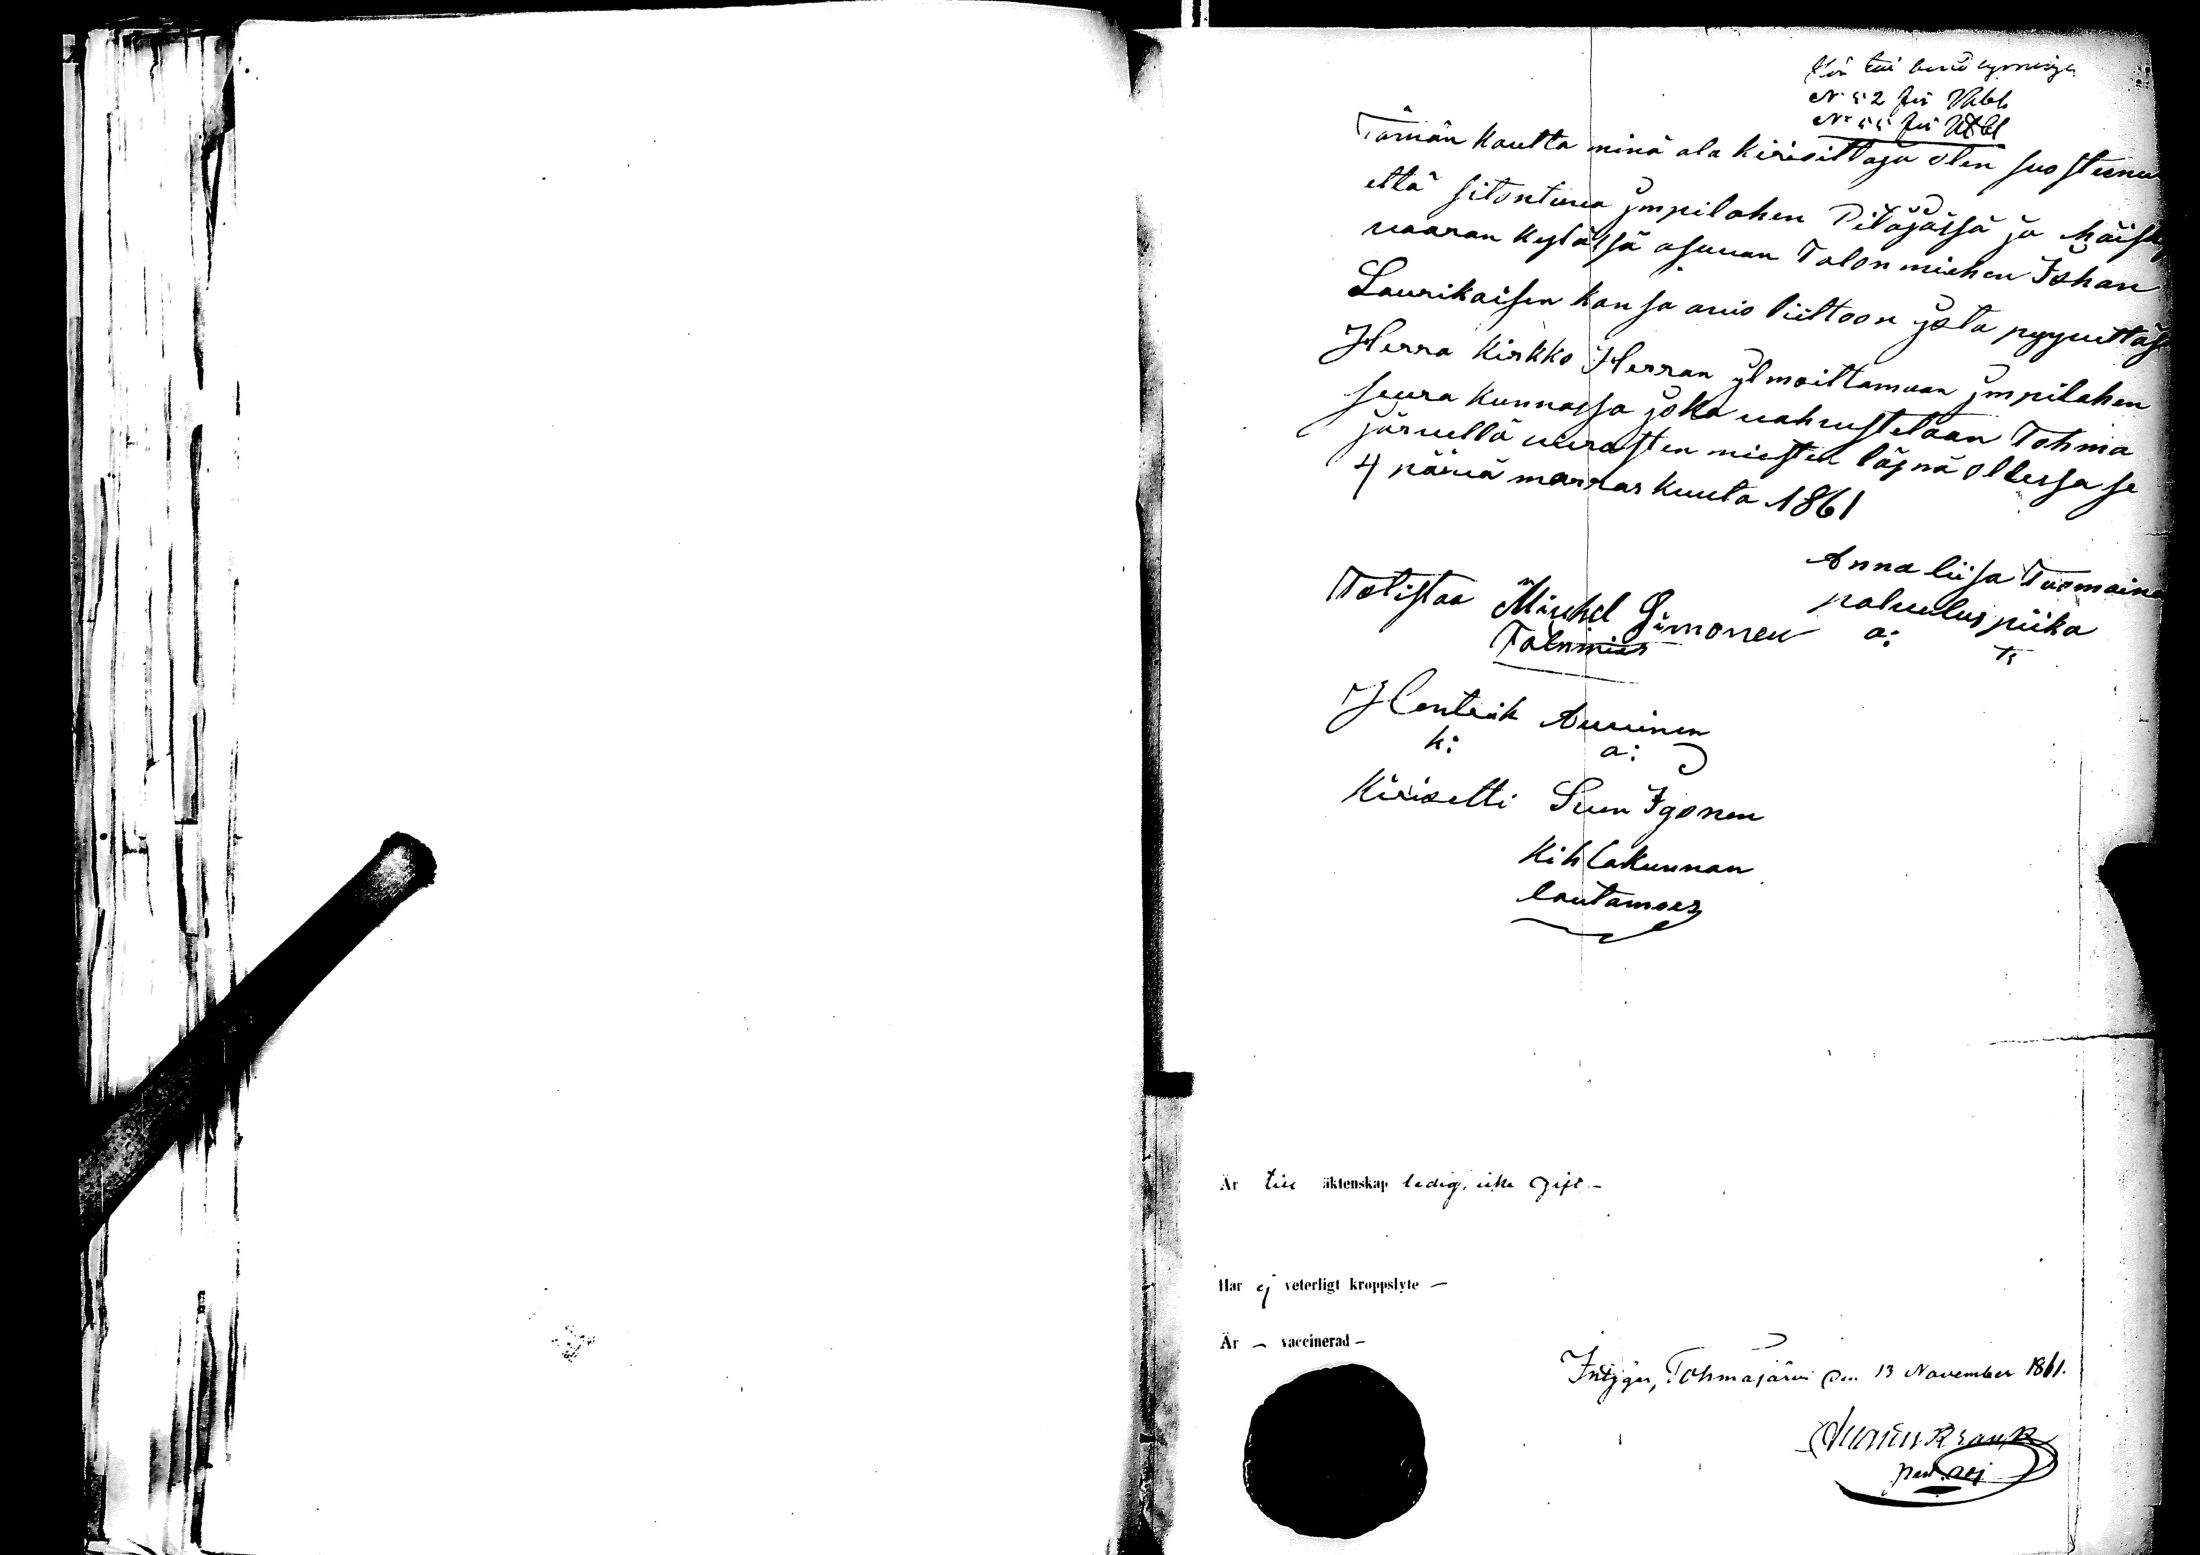 N:52 för
N:55 för
Tämän kautta minä ala kirioittaja olen suostunu
että sitontuua jmpilahen Pitäjässä ja
uaaran kylässä asuuan Talonmiehen Johan
Laurikaisen kansa auio liittoon jota pyyuttäs
Herra kirkko Herran ylmoittamaan jmpilahen
seura kunnassa joka uahuustetaan Tohma
järuellä uierasten miesten läsnä ollessa se
4 päiuä marraskuuta 1861
Anna liisa Tuomaine
palueluspiika
Totistaa Michel Simonen a:
Talonmies
Hentrik Auuinen
k: a:
Kirioitti Sum Igonen
Kihlakunnan
lautamies
Är till äktenskap ledig, icke gift –
Har ej veterligt kroppslyte –
Är – vaccinerad –
Intygar, Tohmajärvi den 13 November 1861.